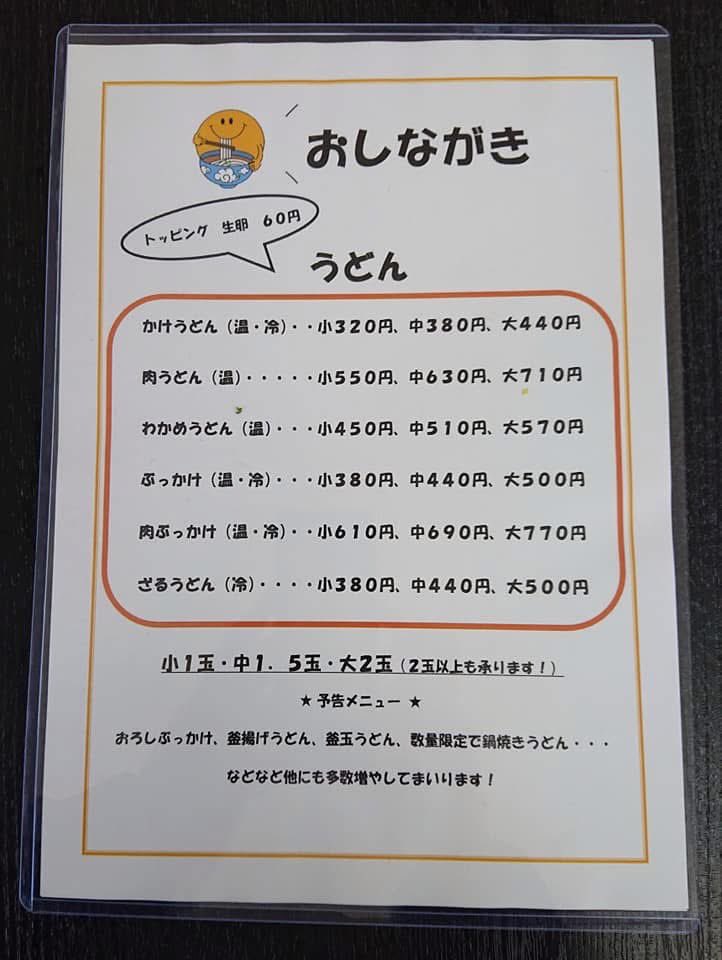 おしながき
トッピング 生卵 60円
うどん
かけうどん（温・冷）・・小320円、中380円、大440円
肉うどん（温）・・・・・小550円、中630円、大710円
わかめうどん（温）・・・小450円、中510円、大570円
ぶっかけ（温・冷）・・・小380円、中440円、大500円
肉ぶっかけ（温・冷）・・小610円、中690円、大770円
ざるうどん（冷）・・・・小380円、中440円、大500円
小1玉・中1．5玉・大2玉（2玉以上も承ります！）
★ 予告メニュー ★
おろしぶっかけ、釜揚げうどん、釜玉うどん、数量限定で鍋焼きうどん・・・
などなど他にも多数増やしてまいります！